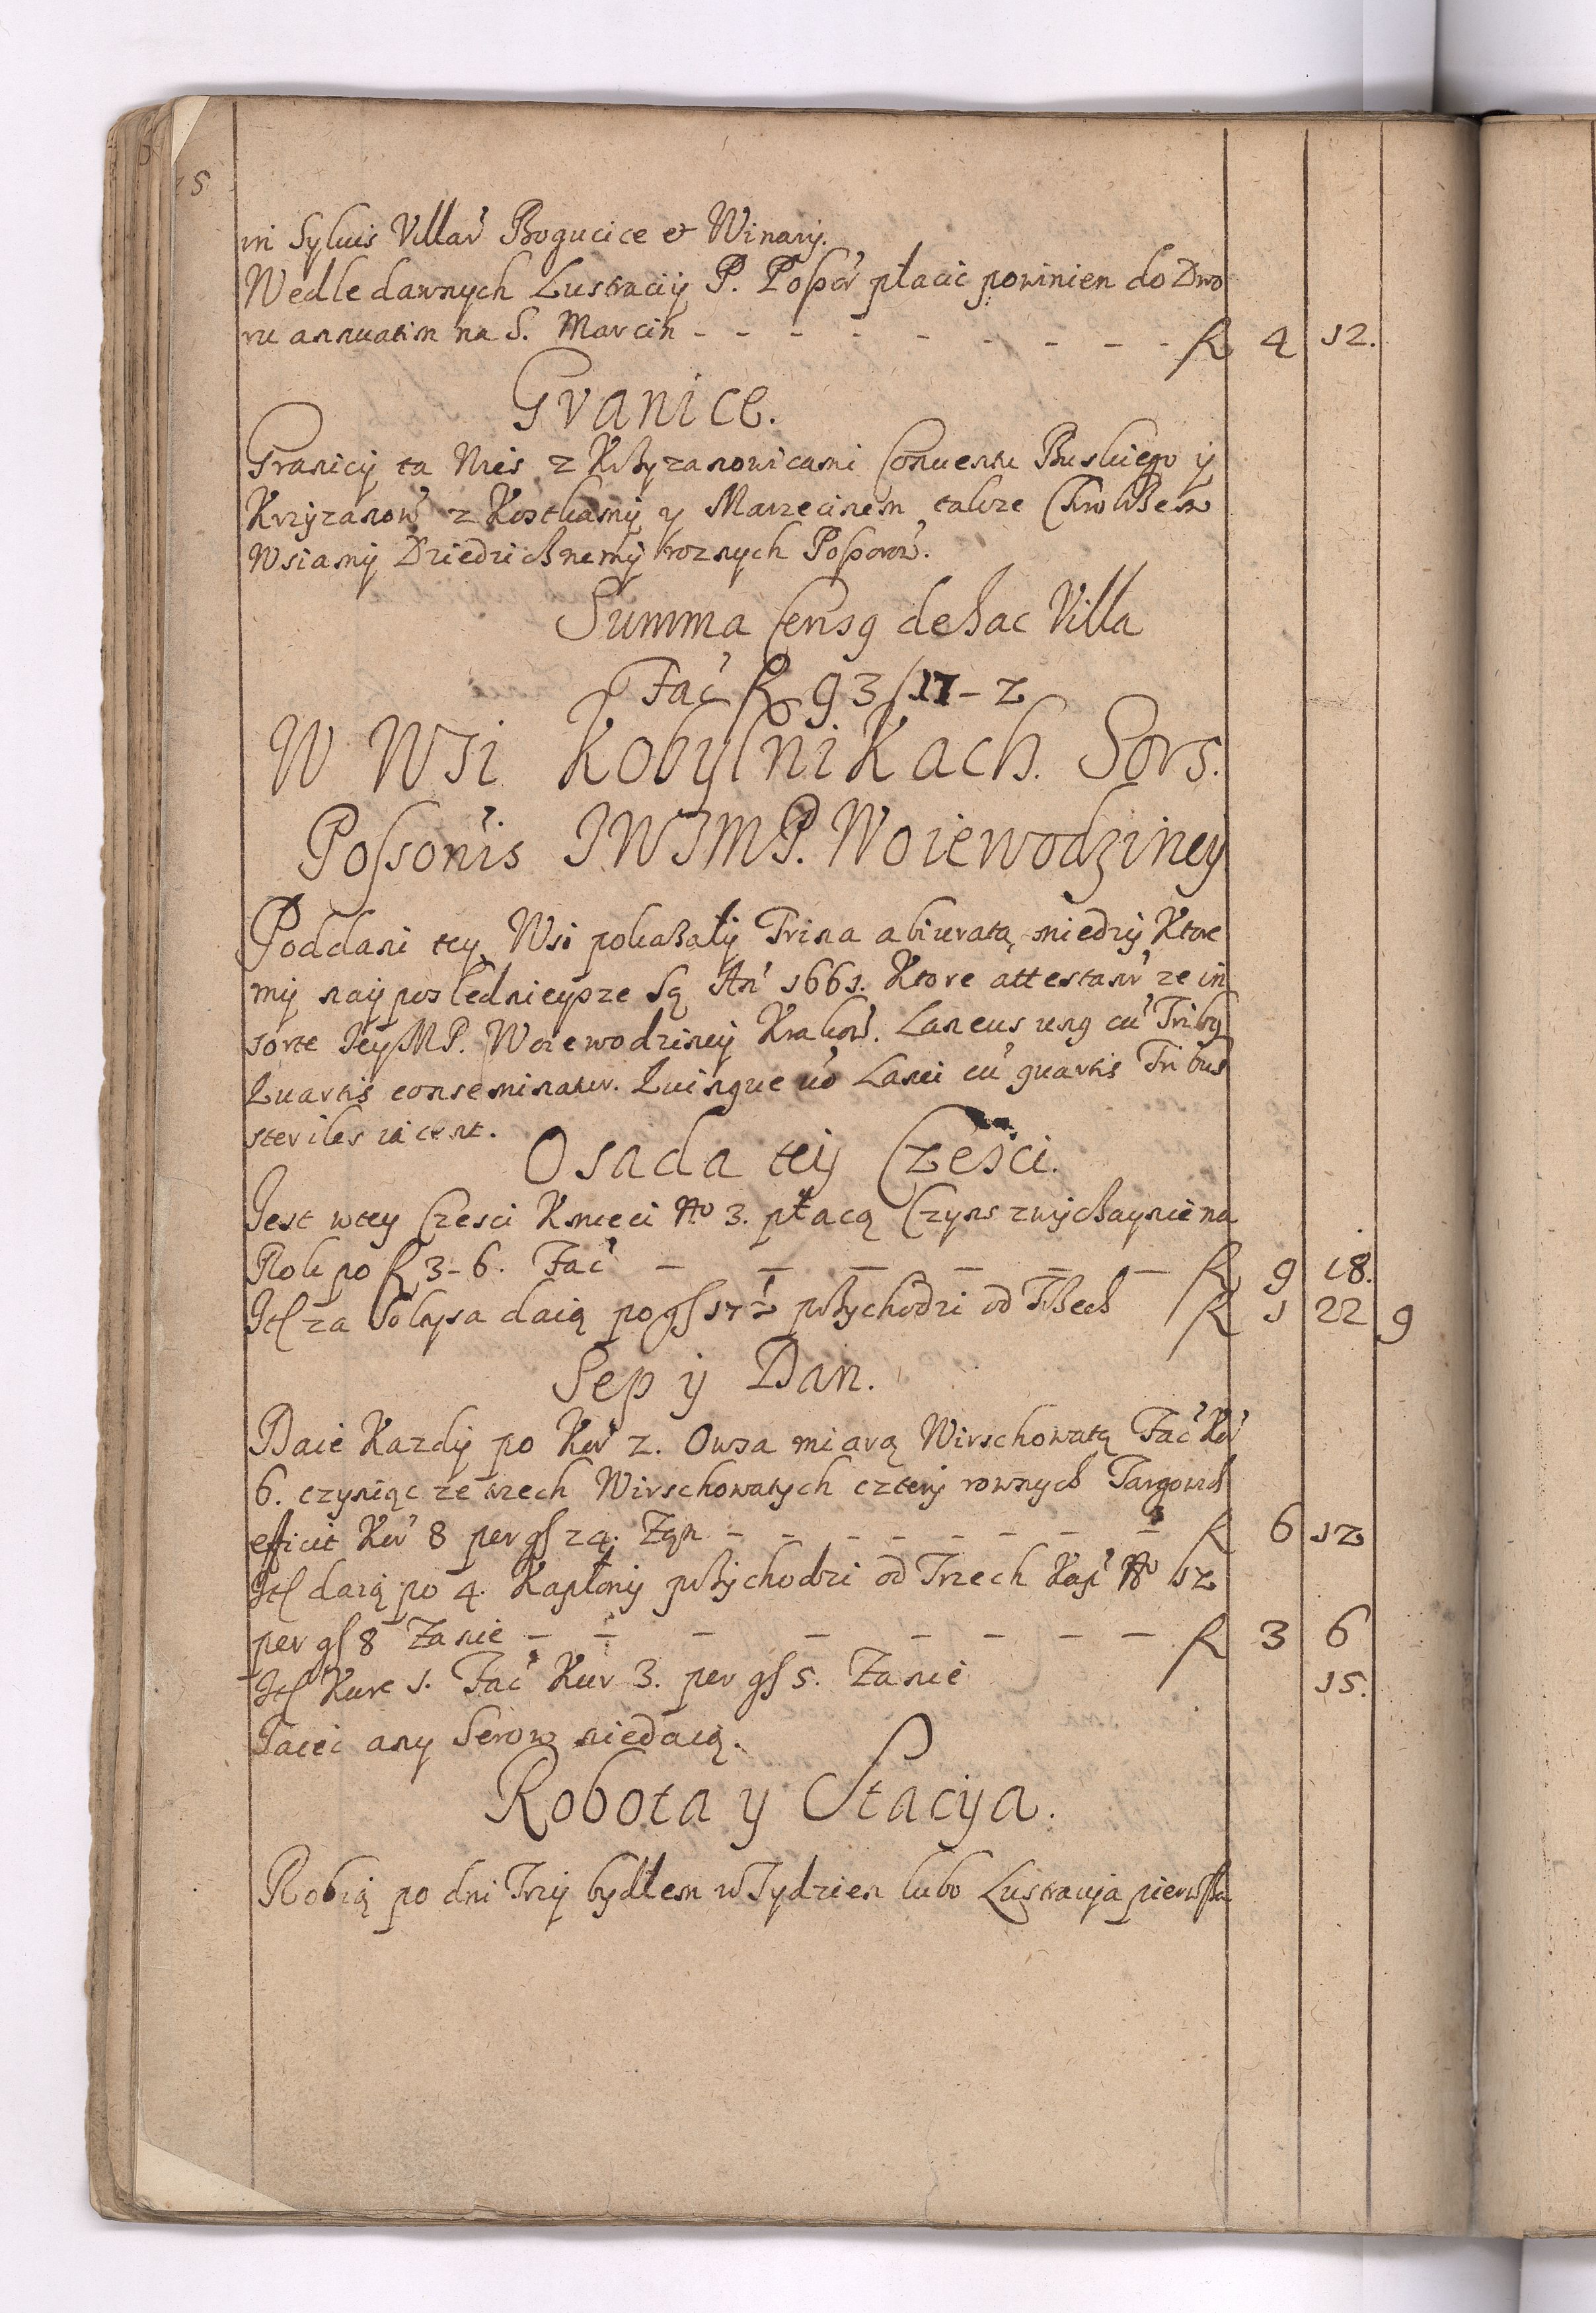 15
in Sylvis Villar Bogucice et Winary.
Wedle dawnych Lustraciij P. Possor płacic powinien do Dwo
ru annuatim na S. Marcin - - - - - - - - - R 4 12.
Granice.
Granicij ta Wies z Krzyzanowicami Conuentu Buskiego ij
Krzyzanow z Kostkamij y Marzecinem takze
Wsiamij Dziedzicznemij roznych Possorow.
Summa Censq de hac Villa
Fac R 93/17-2
W Wsi Kobylnikach. Sors.
Possonis JWJMP. Woiewodziney
Poddani tey Wsi pokazalij Trina abiurata miedzij Ktore
mij naij posledniejsze są An 1661. Ktore attestant ze in
sorte Jey MP. Woiewodzineij Krakow. Laneus unq cu Tribq
Quartis conseminatur. Quinque uo Lanei cu quartis Tribus
steriles iacent.
Osada teij Części.
Jest w tey Czesci Kmieci No 3. płacą Czyns zwijchaynie na
Rok po R 3-6. Fac - - - - - - R 9 18.
Jtt za Soltysa daią po gs 17½ przychodzi od Trzech R 1 22 9
Sep ij Dan.
Daie Kazdij po Kor 2. Owsa miarą Wirschowatą Fac Kor
6. czyniąc ze trzech Wirschowatych czterij rownych Targowych
efficit Kor 8 per gs 24. Zqn - - - - - - - - R 6 12
Jtt daią po 4. Kapłonij przijchodzi od Trzech Kap No 12
per gs 8 Zanie - - - - - - - - R 3 6
Jtt Kure 1. Fac Kur 3. per gs 5. Zanie R 15.
Jaiec any Serow niedaią.
Robota y Stacija.
Robią po dni Trzij bydłem w Tydzien lubo Lustracija pierwsza